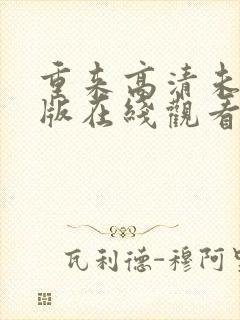 重来高清未
版在綫觀看
瓦利德-穆阿